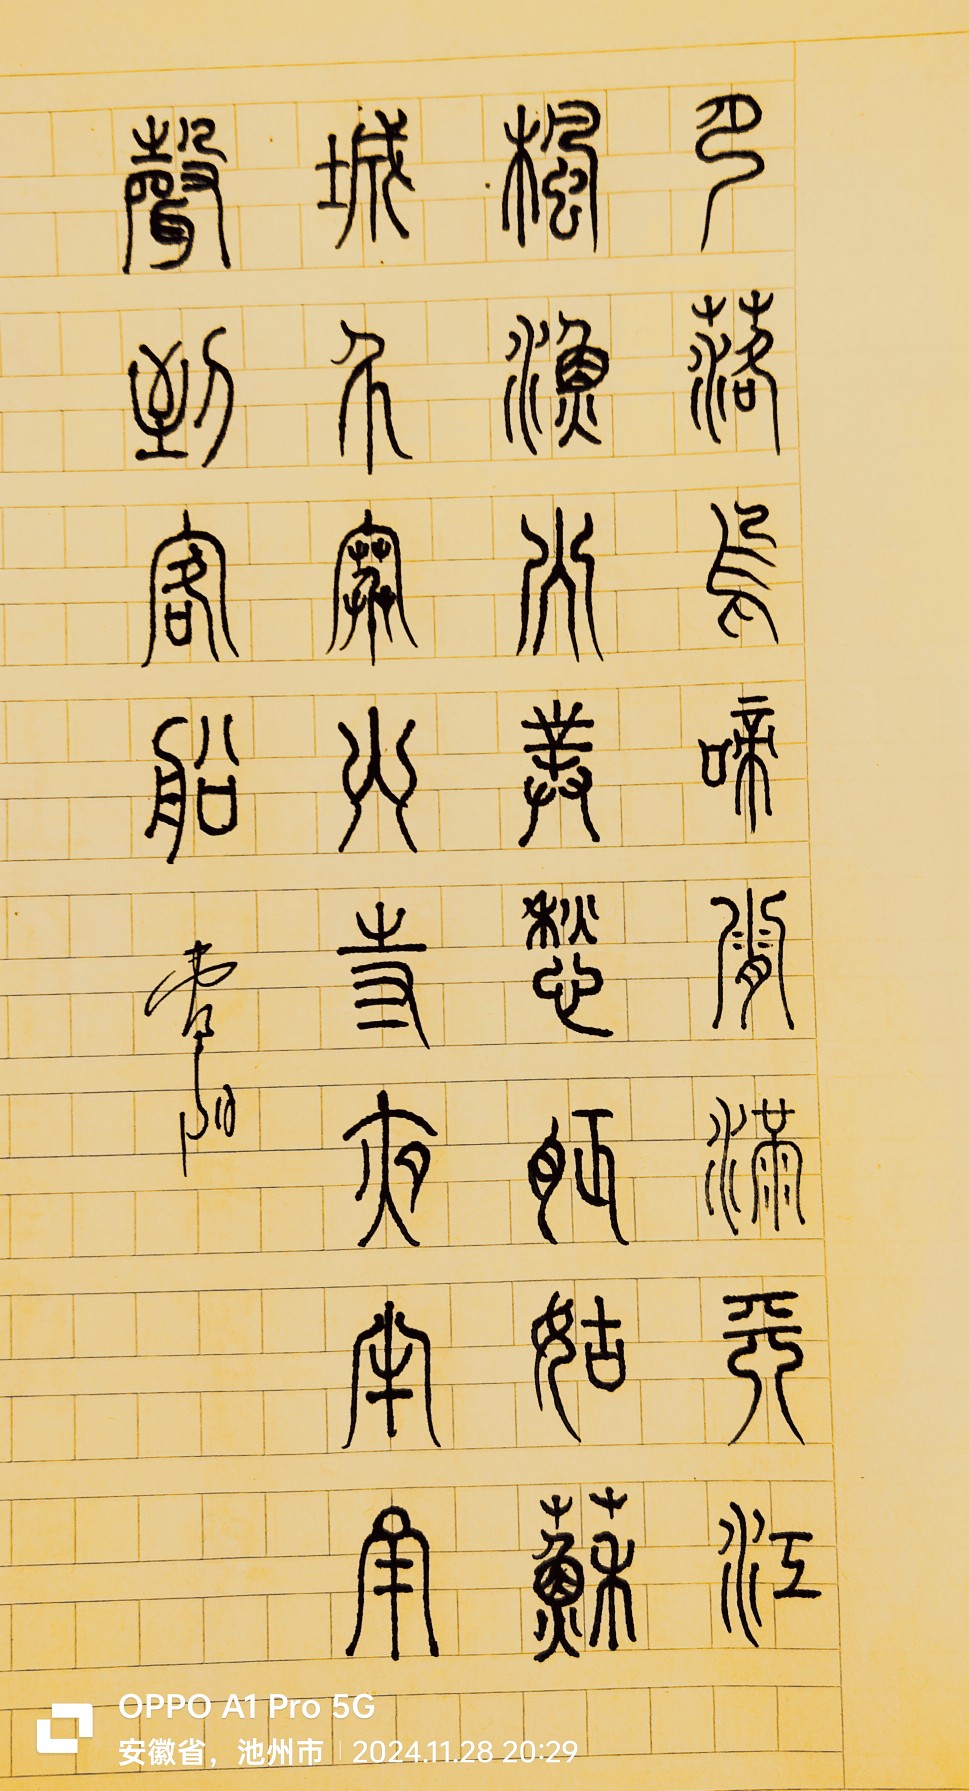 月落烏啼霜滿天江
楓漁火對愁眠姑蘇
城外寒山寺夜半鐘
聲到客船
OPPO A1 Pro 5G
安徽省，池州市 | 2024.11.28 20:29